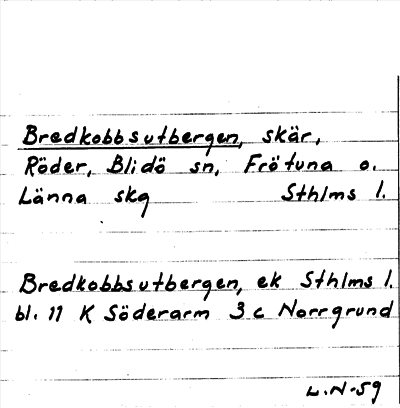 Bredkobbsutbergen, skär,
Röder, Blidö sn, Frötuna o.
Länna skg Sthlms l.
Bredkobbsutbergen, ek Sthlms l.
bl. 11 K Söderarm 3c Norrgrund
L.N-59